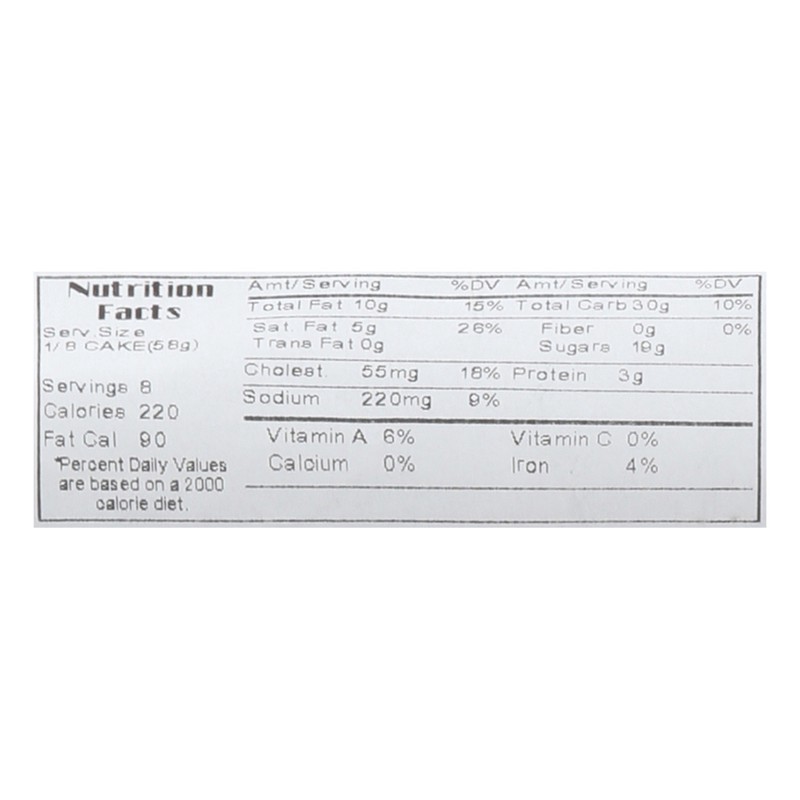 Nutrition
Facts
Serv.Size
1/8 CAKE(58g)
Servings 8
Calories 220
Fat Cal 90
*Percent Daily Values
are based on a 2000
calorie diet.
Amt/Serving %DV Amt/Serving %DV
Total Fat 10g 15% Total Carb 30g 10%
Sat. Fat 5g 26% Fiber 0g 0%
Trans Fat 0g Sugars 19g
Cholest. 55mg 18% Protein 3g
Sodium 220mg 9%
Vitamin A 6% Vitamin C 0%
Calcium 0% Iron 4%